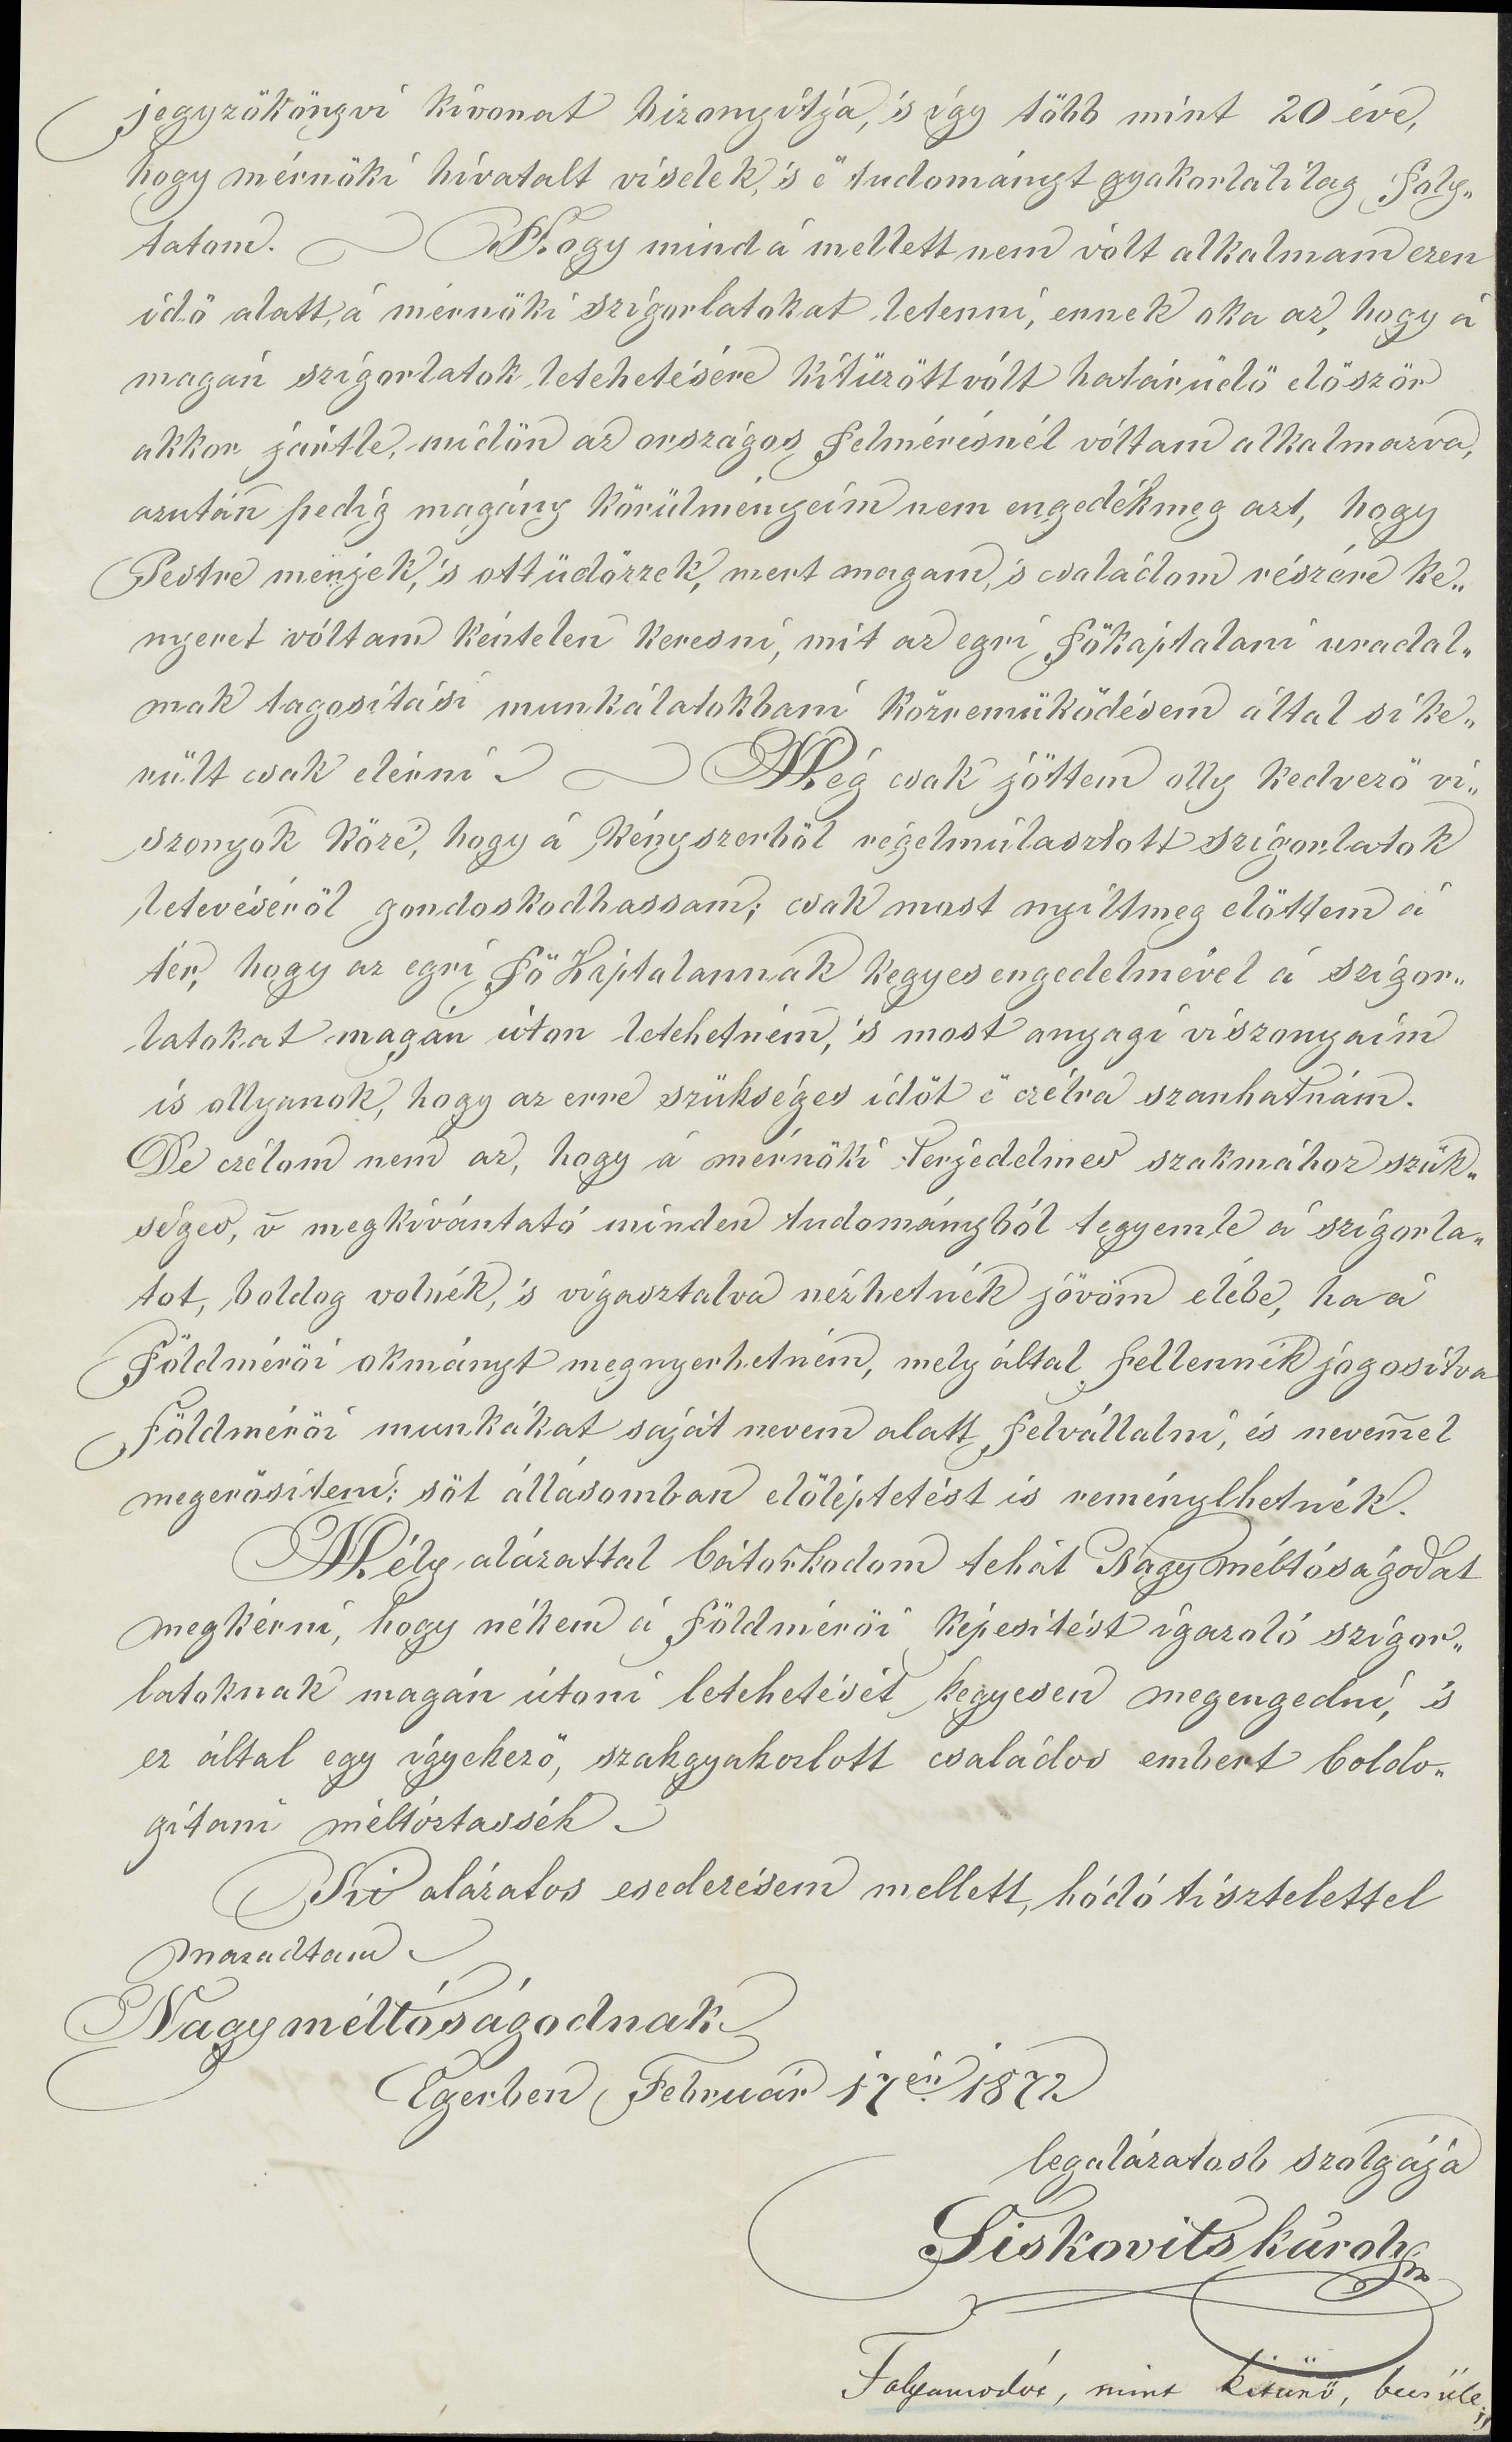 jegyzökönyvi kivonat bizonyitja, 's így több mint 20 éve,
hogy mérnöki hivatalt viselek, 's é tudományt gyakorlatilag foly„
tatom. Hogy mind á mellett nem vólt alkalmam ezen
idö alatt, á mérnöki szigorlatokat letenni, ennek oka az, hogy á
magán szigorlatok letehetésére kitüzött vólt határüdö elöször
akkor járt le, midön az országos felmérésnél vóltam alkalmazva,
azután pedig magány körülményeim nem engedék meg azt, hogy
Pestre menjek, 's ott üdözzek, mert magam, 's családom részére ke„
nyeret vóltam kéntelen keresni, mit az egri fökáptalani uradal„
mak tagositási munkálatokbani közremüködésem által sike„
rült csak elérni. Még csak jöttem olly kedvezö vi„
szonyok közé, hogy á kényszerböl régelmúlasztott szigorlatok
letevéséröl gondoskodhassam; csak most nyilt meg elöttem á
tér, hogy az egri fö Káptalannak kegyes engedelmével á szigor„
latokat magán úton letehetném, 's most anyagi viszonyaim
is ollyanok, hogy az erre szükséges idöt é czélra szánhatnám.
De czélom nem az, hogy á mérnöki terjedelmes szakmához szük„
séges, 's megkivántató minden tudományból tegyem le á szigorla„
tot, boldog volnék, 's vigasztalva nézhetnék jövöm elébe, ha á
földméröi okmányt megnyerhetném, mely által fellennék jogositva
földméröi munkákat saját nevem alatt felvállalni, és nevem̄el
megerösiteni; söt állásomban elöléptetést is reménylhetnék.
Mély alázattal bátorkodom tehát Nagyméltóságodat
megkérni, hogy nékem á földméröi képesitést igazoló szigor„
latoknak magán útoni letehetését kegyesen megengedni, 's
ez által egy igyekezö, szakgyakorlott családos embert boldo„
gitani méltóztassék.
Ki alázatos esedezésem mellett, hódó tisztelettel
maradtam
Nagyméltóságodnak
Egerben Február 17én 1872
legalázatosb szolgája
Siskovits Károly
Folyamodót, mint kitünö,